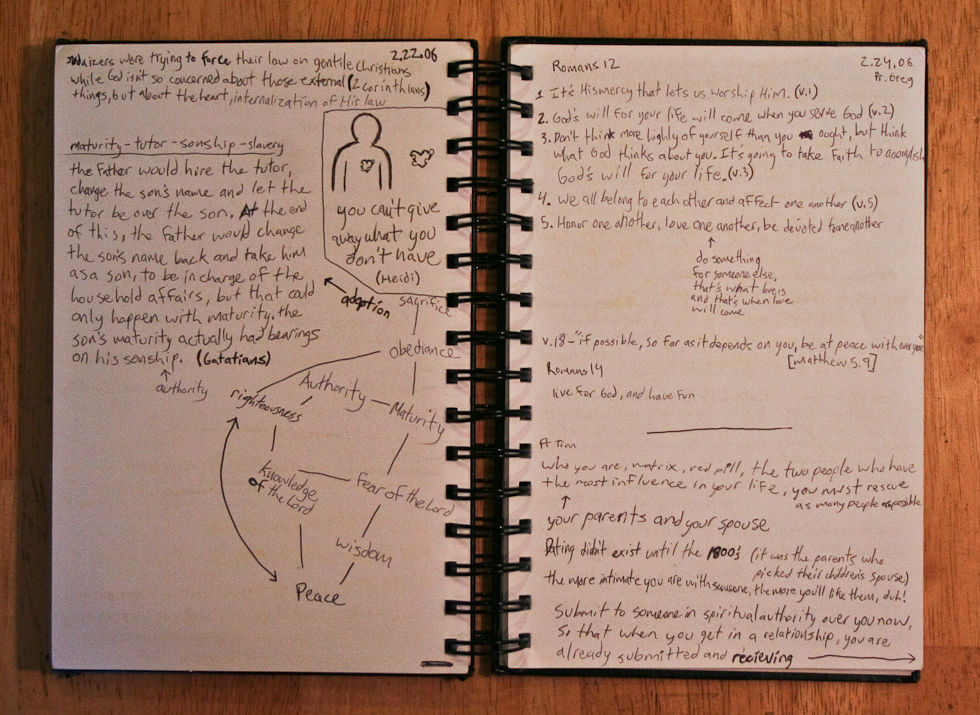 2.22.06
Judaizers were trying to force their law on gentile Christians
while God isn't so concerned about those external (2 Corinthians)
things, but about the heart, internalization of His law
maturity - tutor - sonship - slavery
the Father would hire the tutor,
change the son's name and let the
tutor be over the son. At the end
of this, the Father would change
the son's name back and take him
as a son, to be in charge of the
household affairs, but that could
only happen with maturity. the
son's maturity actually had bearings
on his sonship. (Galatians)
authority
you can't give
away what you
don't have
(Heidi)
adoption
sacrifice
obediance
Authority
Maturity
righteousness
Knowledge
of the Lord
Fear of the Lord
wisdom
Peace
Romans 12
2.24.06
Pr. Greg
1. It's His mercy that lets us worship Him. (v.1)
2. God's will for your life will come when you serve God (v.2)
3. Don't think more highly of yourself than you ought, but think
what God thinks about you. It's going to take Faith to accomplish
God's will for your life. (v.3)
4. we all belong to each other and affect one another (v.5)
5. Honor one another, love one another, be devoted to one another
do something
for someone else,
that's what love is
and that's when love
will come
v.18 - "if possible, so far as it depends on you, be at peace with everyone"
[Matthew 5.9]
Romans 14
live for God, and have fun
Pr Tim
who you are, matrix, red pill, the two people who have
the most influence in your life, you must rescue
as many people as possible
your parents and your spouse
Dating didn't exist until the 1900's (it was the parents who
picked their children's spouse)
the more intimate you are with someone, the more you'll like them, duh!
Submit to someone in spiritual authority over you now,
so that when you get in a relationship, you are
already submitted and recieving